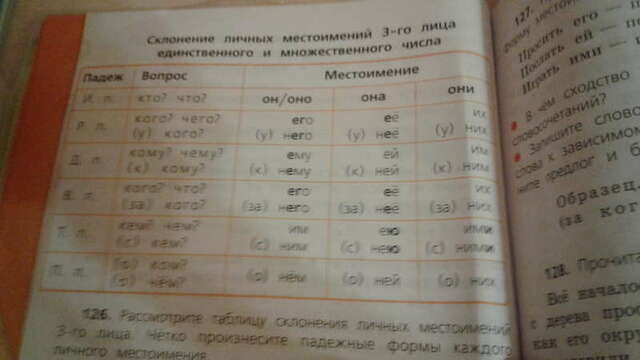 Склонение личных местоимений 3-го лица
единственного и множественного числа
Падеж Вопрос Местоимение
И. п. кто? что? он/оно она они
Р. п. кого? чего? его её их
(у) кого? (у) него (у) неё (у) них
Д. п. кому? чему? ему ей им
(к) кому? (к) нему (к) ней (к) ним
В. п. кого? что? его её их
(за) кого? (за) него (за) неё (за) них
Т. п. кем? чем? им ею ими
(с) кем? (с) ним (с) нею (с) ними
П. п. (о) ком? (о) нём (о) ней (о) них
(о) чём?
126. Рассмотрите таблицу склонения личных местоимений
3-го лица. Чётко произнесите падежные формы каждого
личного местоимения.
127.
форму местои
Просить его —
Послать ей — по
Играть ими —
В чём сходство
словосочетаний?
Запишите слово
слова к зависимо
ните предлог и б
Образец.
(за ког
128. Прочита
Всё начало
с дерева прос
как его окр